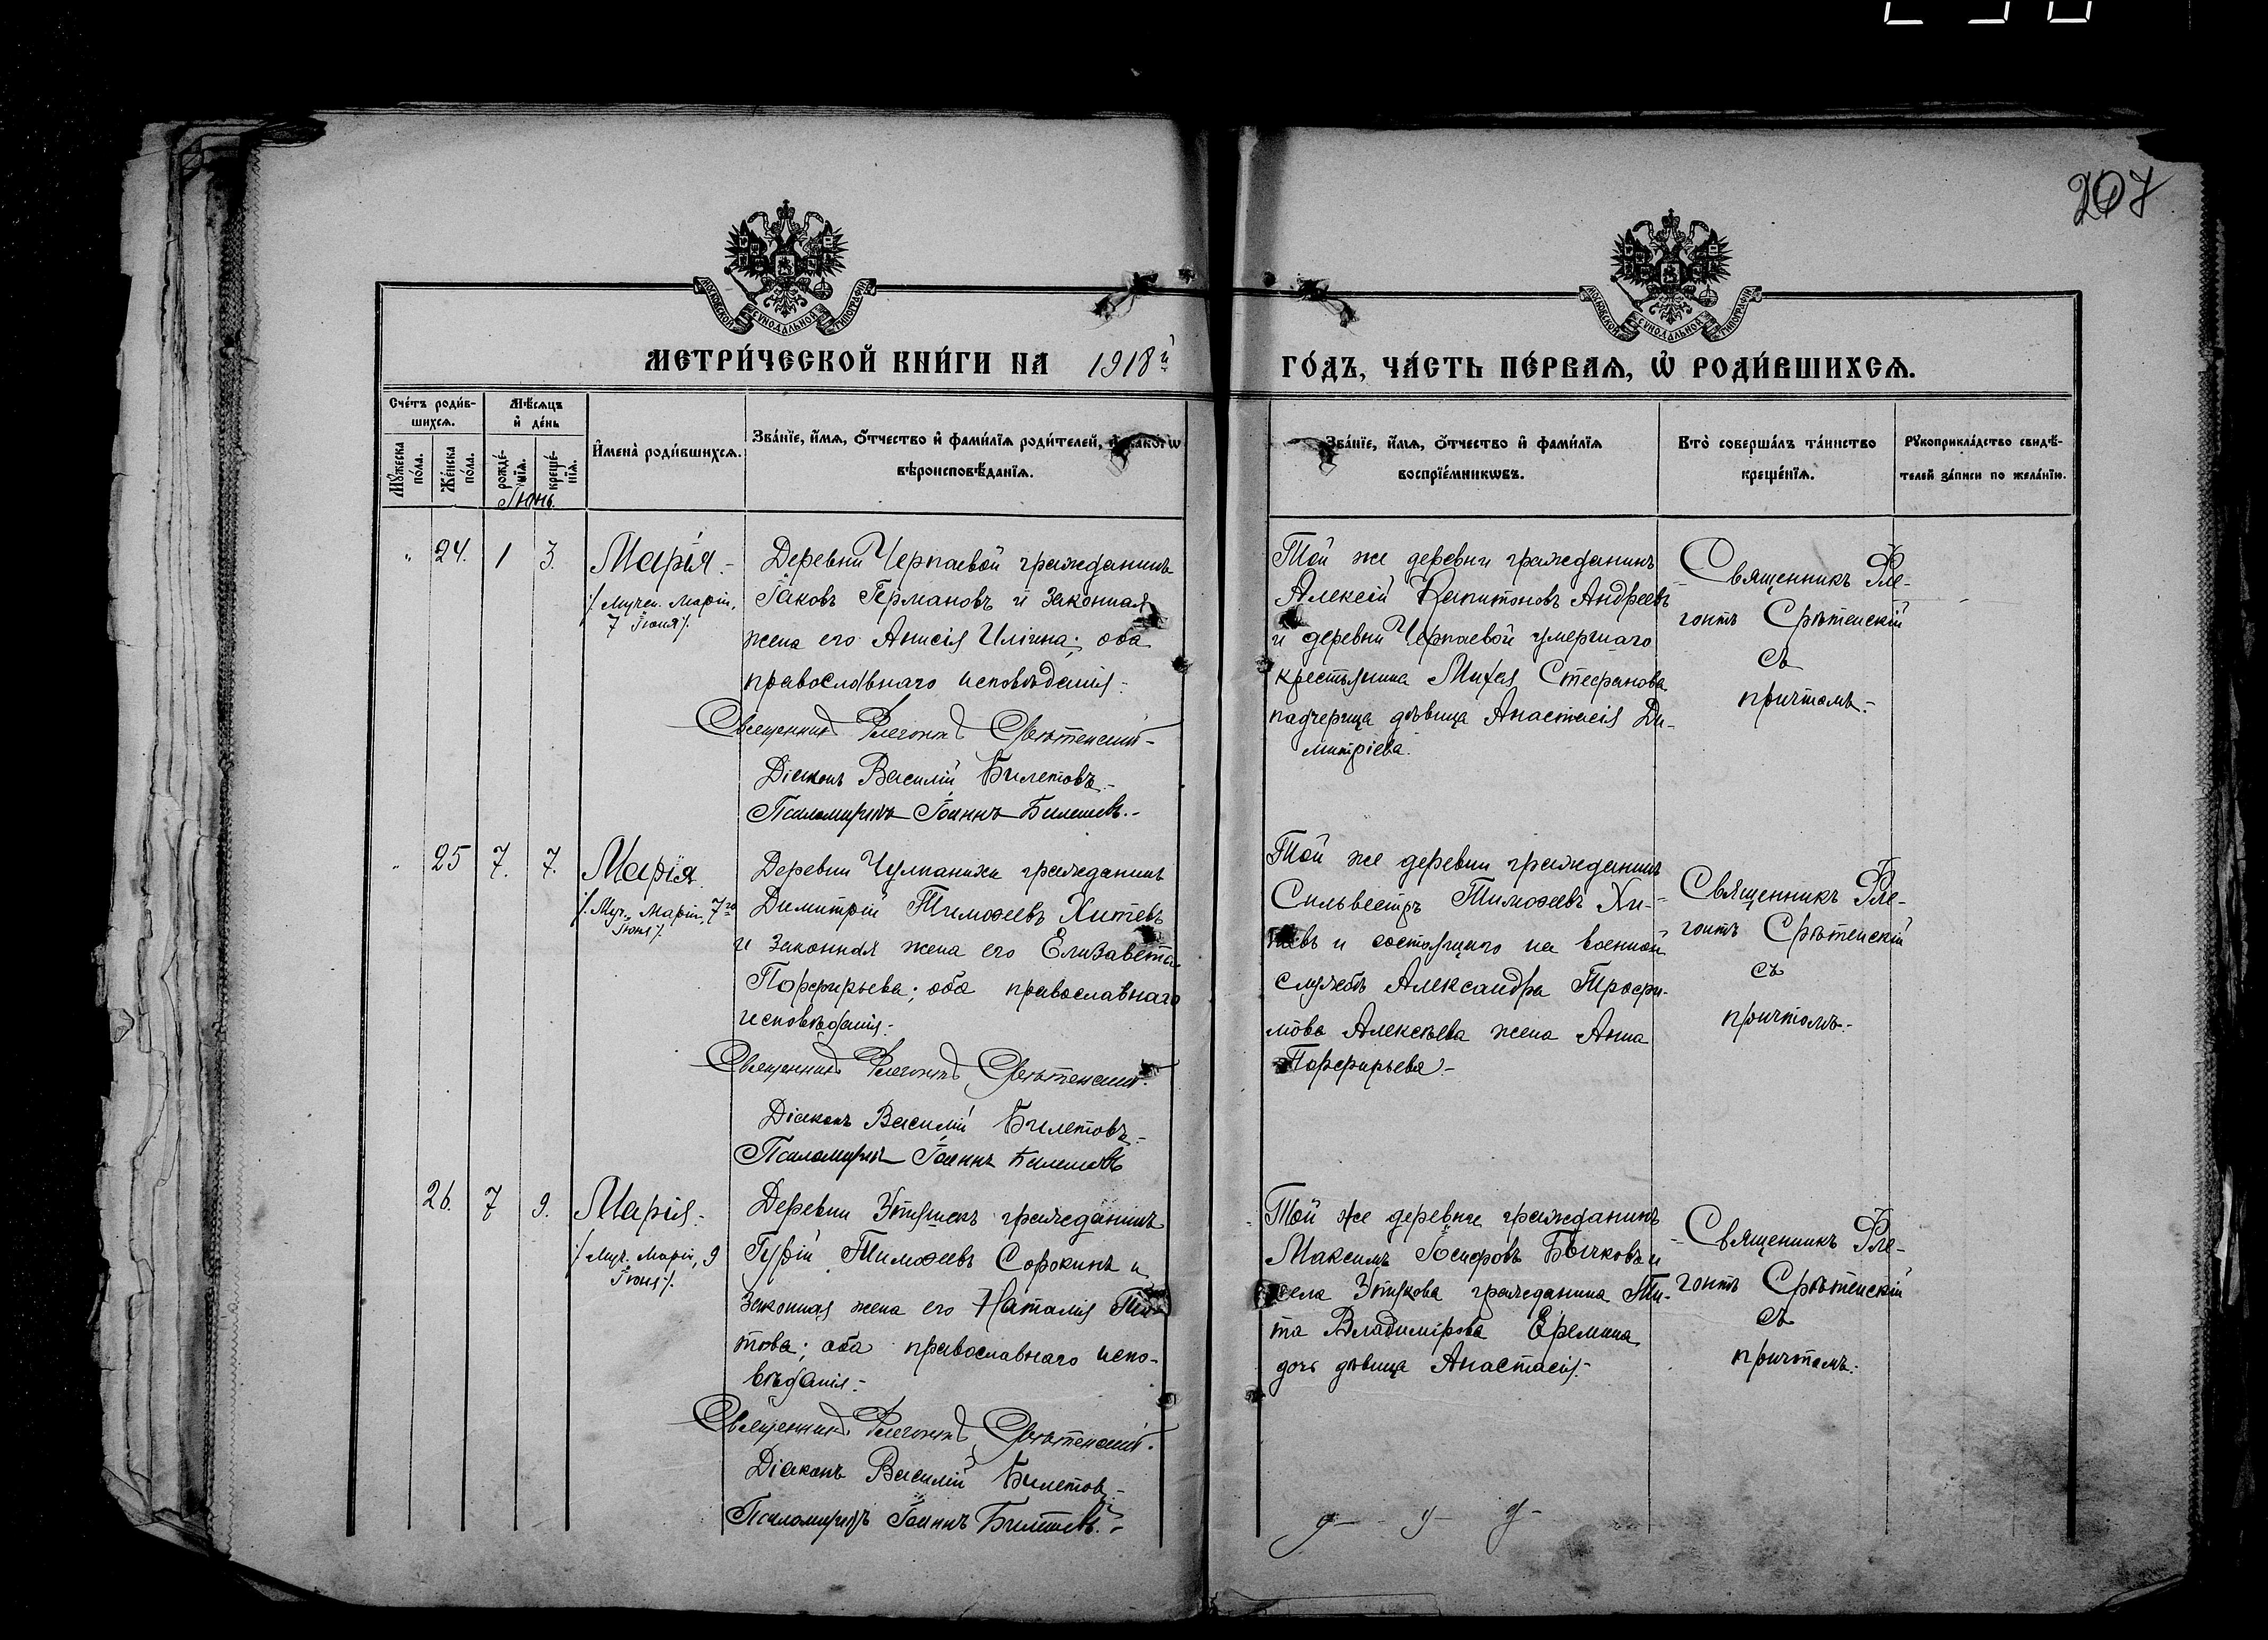 207
МОСКОВСКОЙ СѴНОДАЛЬНОЙ ТИПОГРАФІИ
МОСКОВСКОЙ СѴНОДАЛЬНОЙ ТИПОГРАФІИ
МЕТРИ́ЧЕСКОЙ КНИ́ГИ НА 1918й ГО́ДЪ, ЧА́СТЬ ПЕ́РВАѦ, Ѡ҆ РОДИ́ВШИХСѦ.
Сче́тъ роди́в-
шихсѧ.
Мꙋ́жеска по́ла.
Же́нска по́ла.
Мѣ́сѧцъ
и҆ де́нь
рожде́-
нїѧ.
креще́-
нїѧ.
Іюнь.
И҆мена̀ роди́вшихсѧ.
Зва́нїе, и҆́мѧ, ѻ҆́тчество и҆ фами́лїѧ роди́телей, и҆ како́гѡ
вѣроисповѣ́данїѧ.
Зва́нїе, и҆́мѧ, ѻ҆́тчество и҆ фами́лїѧ
воспрїе́мникѡвъ.
Кто̀ соверша́лъ та́инство
креще́нїѧ.
Рꙋкоприкла́дство свидѣ́-
телей за́писи по жела́нїю.
" 24. 1 3.
Марія.-
/. Мучен. Маріи,
7 Іюня/.
Деревни Черпаевой гражданинъ
Іаковъ Германовъ и законная
жена его Анисія Иліина; оба
православнаго исповѣданія.-
Священникъ Флегонтъ Срѣтенскій-
Діаконъ Василій Билетовъ.-
Псаломщикъ Іоаннъ Билетовъ.-
Той же деревни гражданинъ
Алексій Капитоновъ Андреевъ
и деревни Черпаевой умершаго
крестьянина Михея Стефанова
падчерица дѣвица Анастасія Ди-
митріева.
Священникъ Фле-
гонтъ Срѣтенскій
съ
причтомъ.-
25 7. 7.
Марія.
/. Муч. Маріи, 7го
Іюня/.
Деревни Чулпанихи гражданинъ
Димитрій Тимоѳеевъ Хитевъ
и законная жена его Елизавета
Порфирьева; оба православнаго
исповѣданія.-
Священникъ Флегонтъ Срѣтенскій.
Діаконъ Василій Билетовъ.-
Псаломщикъ Іоаннъ Билетовъ
Той же деревни гражданинъ
Сильвестръ Тимоѳеевъ Хи-
тевъ и состоящаго на военной
службѣ Александра Трофи-
мова Алексѣева жена Анна
Порфирьева.-
Священникъ Фле-
гонтъ Срѣтенскій
съ
причтомъ.-
26. 7 9.
Марія.-
/. Муч. Маріи, 9
Іюня/.
Деревни гражданинъ
Гурій Тимоѳеевъ Сорокинъ и
законная жена его Наталія Ти-
това; оба православнаго испо-
вѣданія.-
Священникъ Флегонтъ Срѣтенскій.
Діаконъ Василій Билетовъ.-
Псаломщикъ Іоаннъ Билетовъ.-
Той же деревни гражданинъ
Максимъ Іосифовъ Бычковъ и
села гражданина Ти-
та Владимірова Еремина
дочь дѣвица Анастасія.-
Священникъ Фле-
гонтъ Срѣтенскій
съ
причтомъ.-